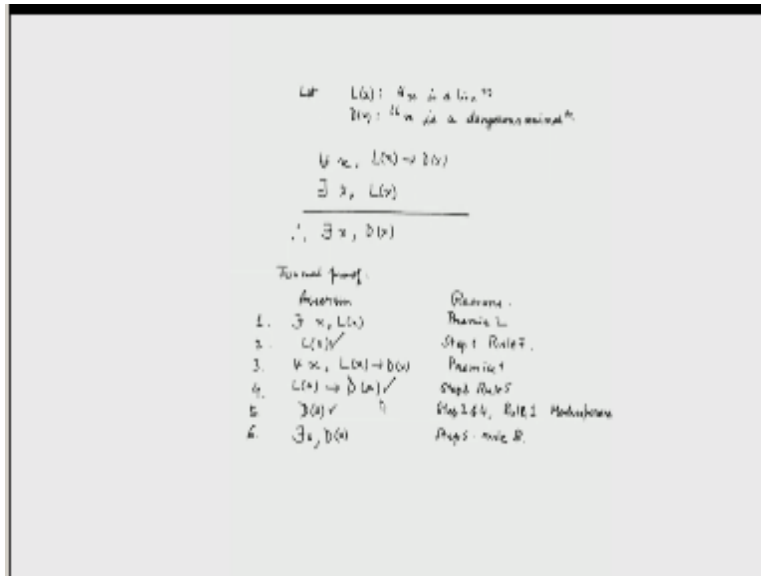 Let L(x): "x is a lion"
D(x): "x is a dangerous animal".
∀ x, L(x) → D(x)
∃ x, L(x)
∴ ∃ x, D(x)
Formal proof.
Assertion Reasons.
1. ∃ x, L(x) Premise 2
2. L(a) ✓ Step 1 Rule 7.
3. ∀ x, L(x) → D(x) Premise 1
4. L(a) → D(a) ✓ Step 3 Rule 5
5. D(a) ✓ Step 2 & 4, Rule 1 Modus ponens
6. ∃x, D(x) Step 5 rule 8.